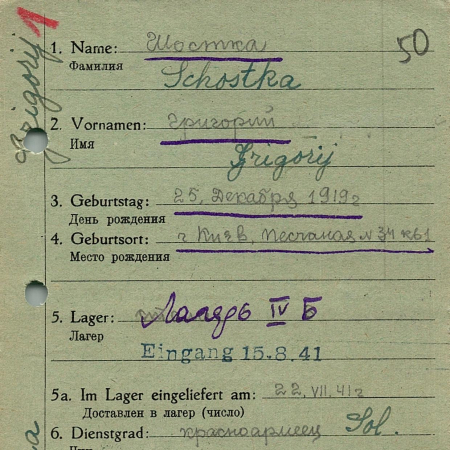 1
50
Grigorij
1. Name: Шостка
Фамилия
Schostka
2. Vornamen: Григорий
Имя
Grigorij
3. Geburtstag: 25, Декабря 1919 г
День рождения
4. Geburtsort: г Киев, Песчаная № 34 к 61
Место рождения
5. Lager: Лагярь IV Б
Лагер
Eingang 15.8.41
5a. Im Lager eingeliefert am: 22, VII. 41 г
Доставлен в лагер (число)
6. Dienstgrad: красноармеец Sol.